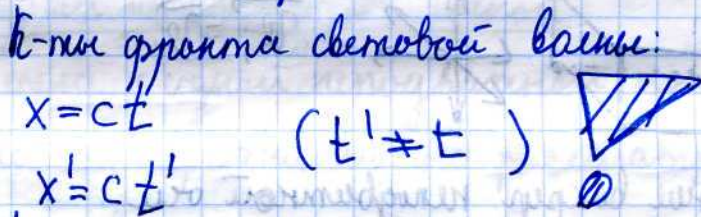 К-ты фронта световой волны:
x = ct
(t' ≠ t)
x' = ct'